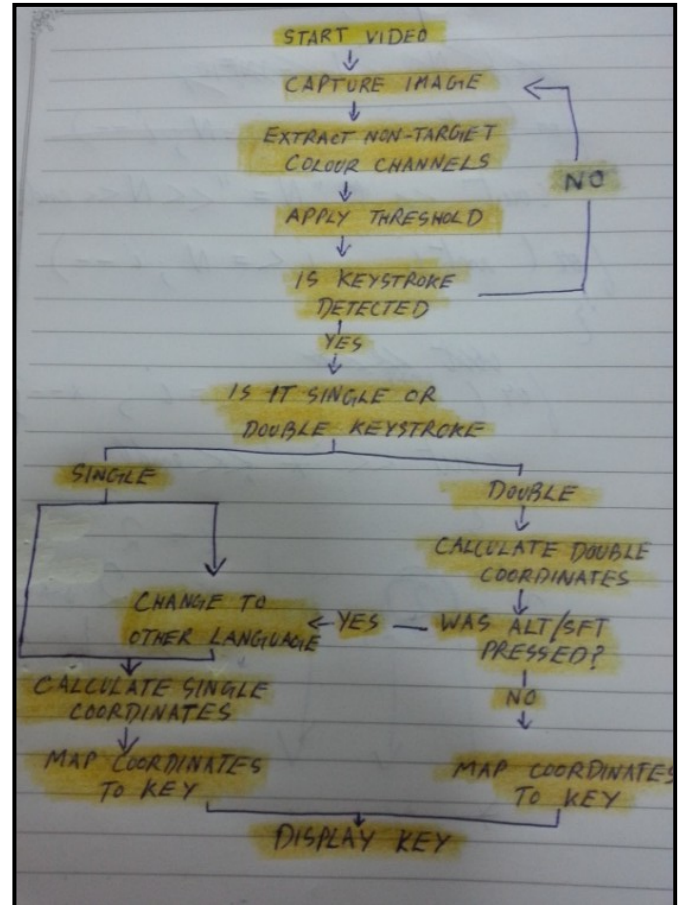 START VIDEO
CAPTURE IMAGE
EXTRACT NON-TARGET
COLOUR CHANNELS
NO
APPLY THRESHOLD
IS KEYSTROKE
DETECTED
YES
IS IT SINGLE OR
DOUBLE KEYSTROKE
SINGLE
DOUBLE
CALCULATE DOUBLE
COORDINATES
CHANGE TO
OTHER LANGUAGE
YES
WAS ALT/SFT
PRESSED?
NO
CALCULATE SINGLE
COORDINATES
MAP COORDINATES
TO KEY
MAP COORDINATES
TO KEY
DISPLAY KEY